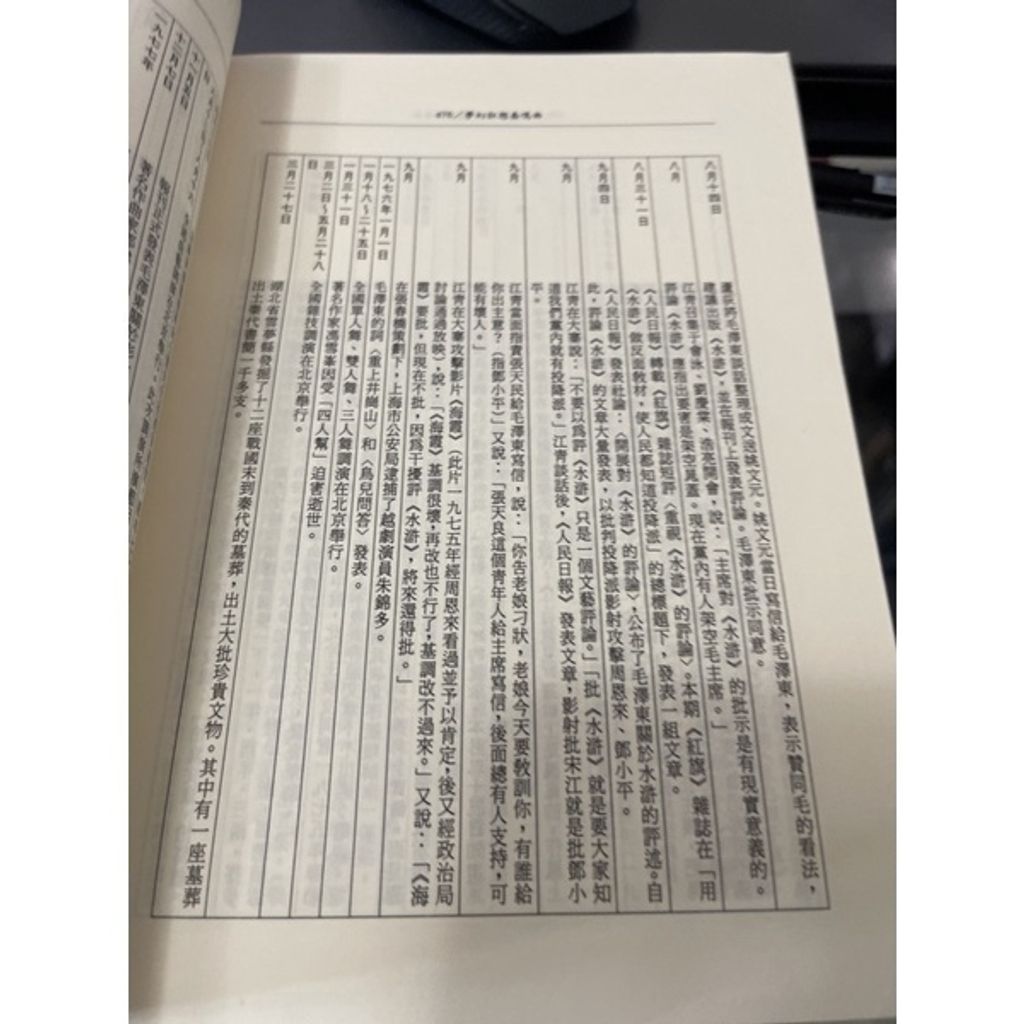 八月十四日
蘆荻將毛澤東談話整理成文送姚文元。姚文元當日寫信給毛澤東，表示贊同毛的看法，
建議出版《水滸》，並在報刊上發表評論。毛澤東批示同意。
八月
江青召集于會泳、劉慶棠、浩亮開會，說：「主席對《水滸》的批示是有現實意義的。
評論《水滸》應指出要害是架空晁蓋。現在黨內有人架空毛主席。」
八月三十一日
《人民日報》轉載《紅旗》雜誌短評〈重視《水滸》的評論〉。本期《紅旗》雜誌在「用
《水滸》做反面教材，使人民都知道投降派」的總標題下，發表一組文章。
九月四日
《人民日報》發表社論：〈開展對《水滸》的評論〉，公布了毛澤東關於水滸的評述。自
此，評論《水滸》的文章大量發表，以批判投降派影射攻擊周恩來、鄧小平。
九月
江青在大寨說：「不要以爲評《水滸》只是一個文藝評論。」「批《水滸》就是要大家知
道我們黨內就有投降派。」江青談話後，《人民日報》發表文章，影射批宋江就是批鄧小
平。
九月
江青當面指責張天民給毛澤東寫信，說：「你告老娘刁狀，老娘今天要教訓你，有誰給
你出主意？（指鄧小平）」又說：「張天良這個青年人給主席寫信，後面總有人支持，可
能有壞人。」
九月
江青在大寨攻擊影片《海霞》（此片一九七五年經周恩來看過並予以肯定，後又經政治局
討論通過放映），說：「《海霞》基調很壞，再改也不行了，基調改不過來。」又說：「《海
霞》要批，但現在不批，因爲干擾評《水滸》，將來還得批。」
九月
在張春橋策劃下，上海市公安局逮捕了越劇演員朱錦多。
一九七六年一月一日
毛澤東的詞〈重上井崗山〉和〈鳥兒問答〉發表。
一月十六～二十五日
全國單人舞、雙人舞、三人舞調演在北京舉行。
一月三十一日
著名作家馮雪峯因受「四人幫」迫害逝世。
三月二日～五月二十八
日
全國雜技調演在北京舉行。
三月二十七日
湖北省雲夢縣發掘了十二座戰國末到秦代的墓葬，出土大批珍貴文物。其中有一座墓葬
出土秦代書簡一千多支。
十二月七日
一九七七年